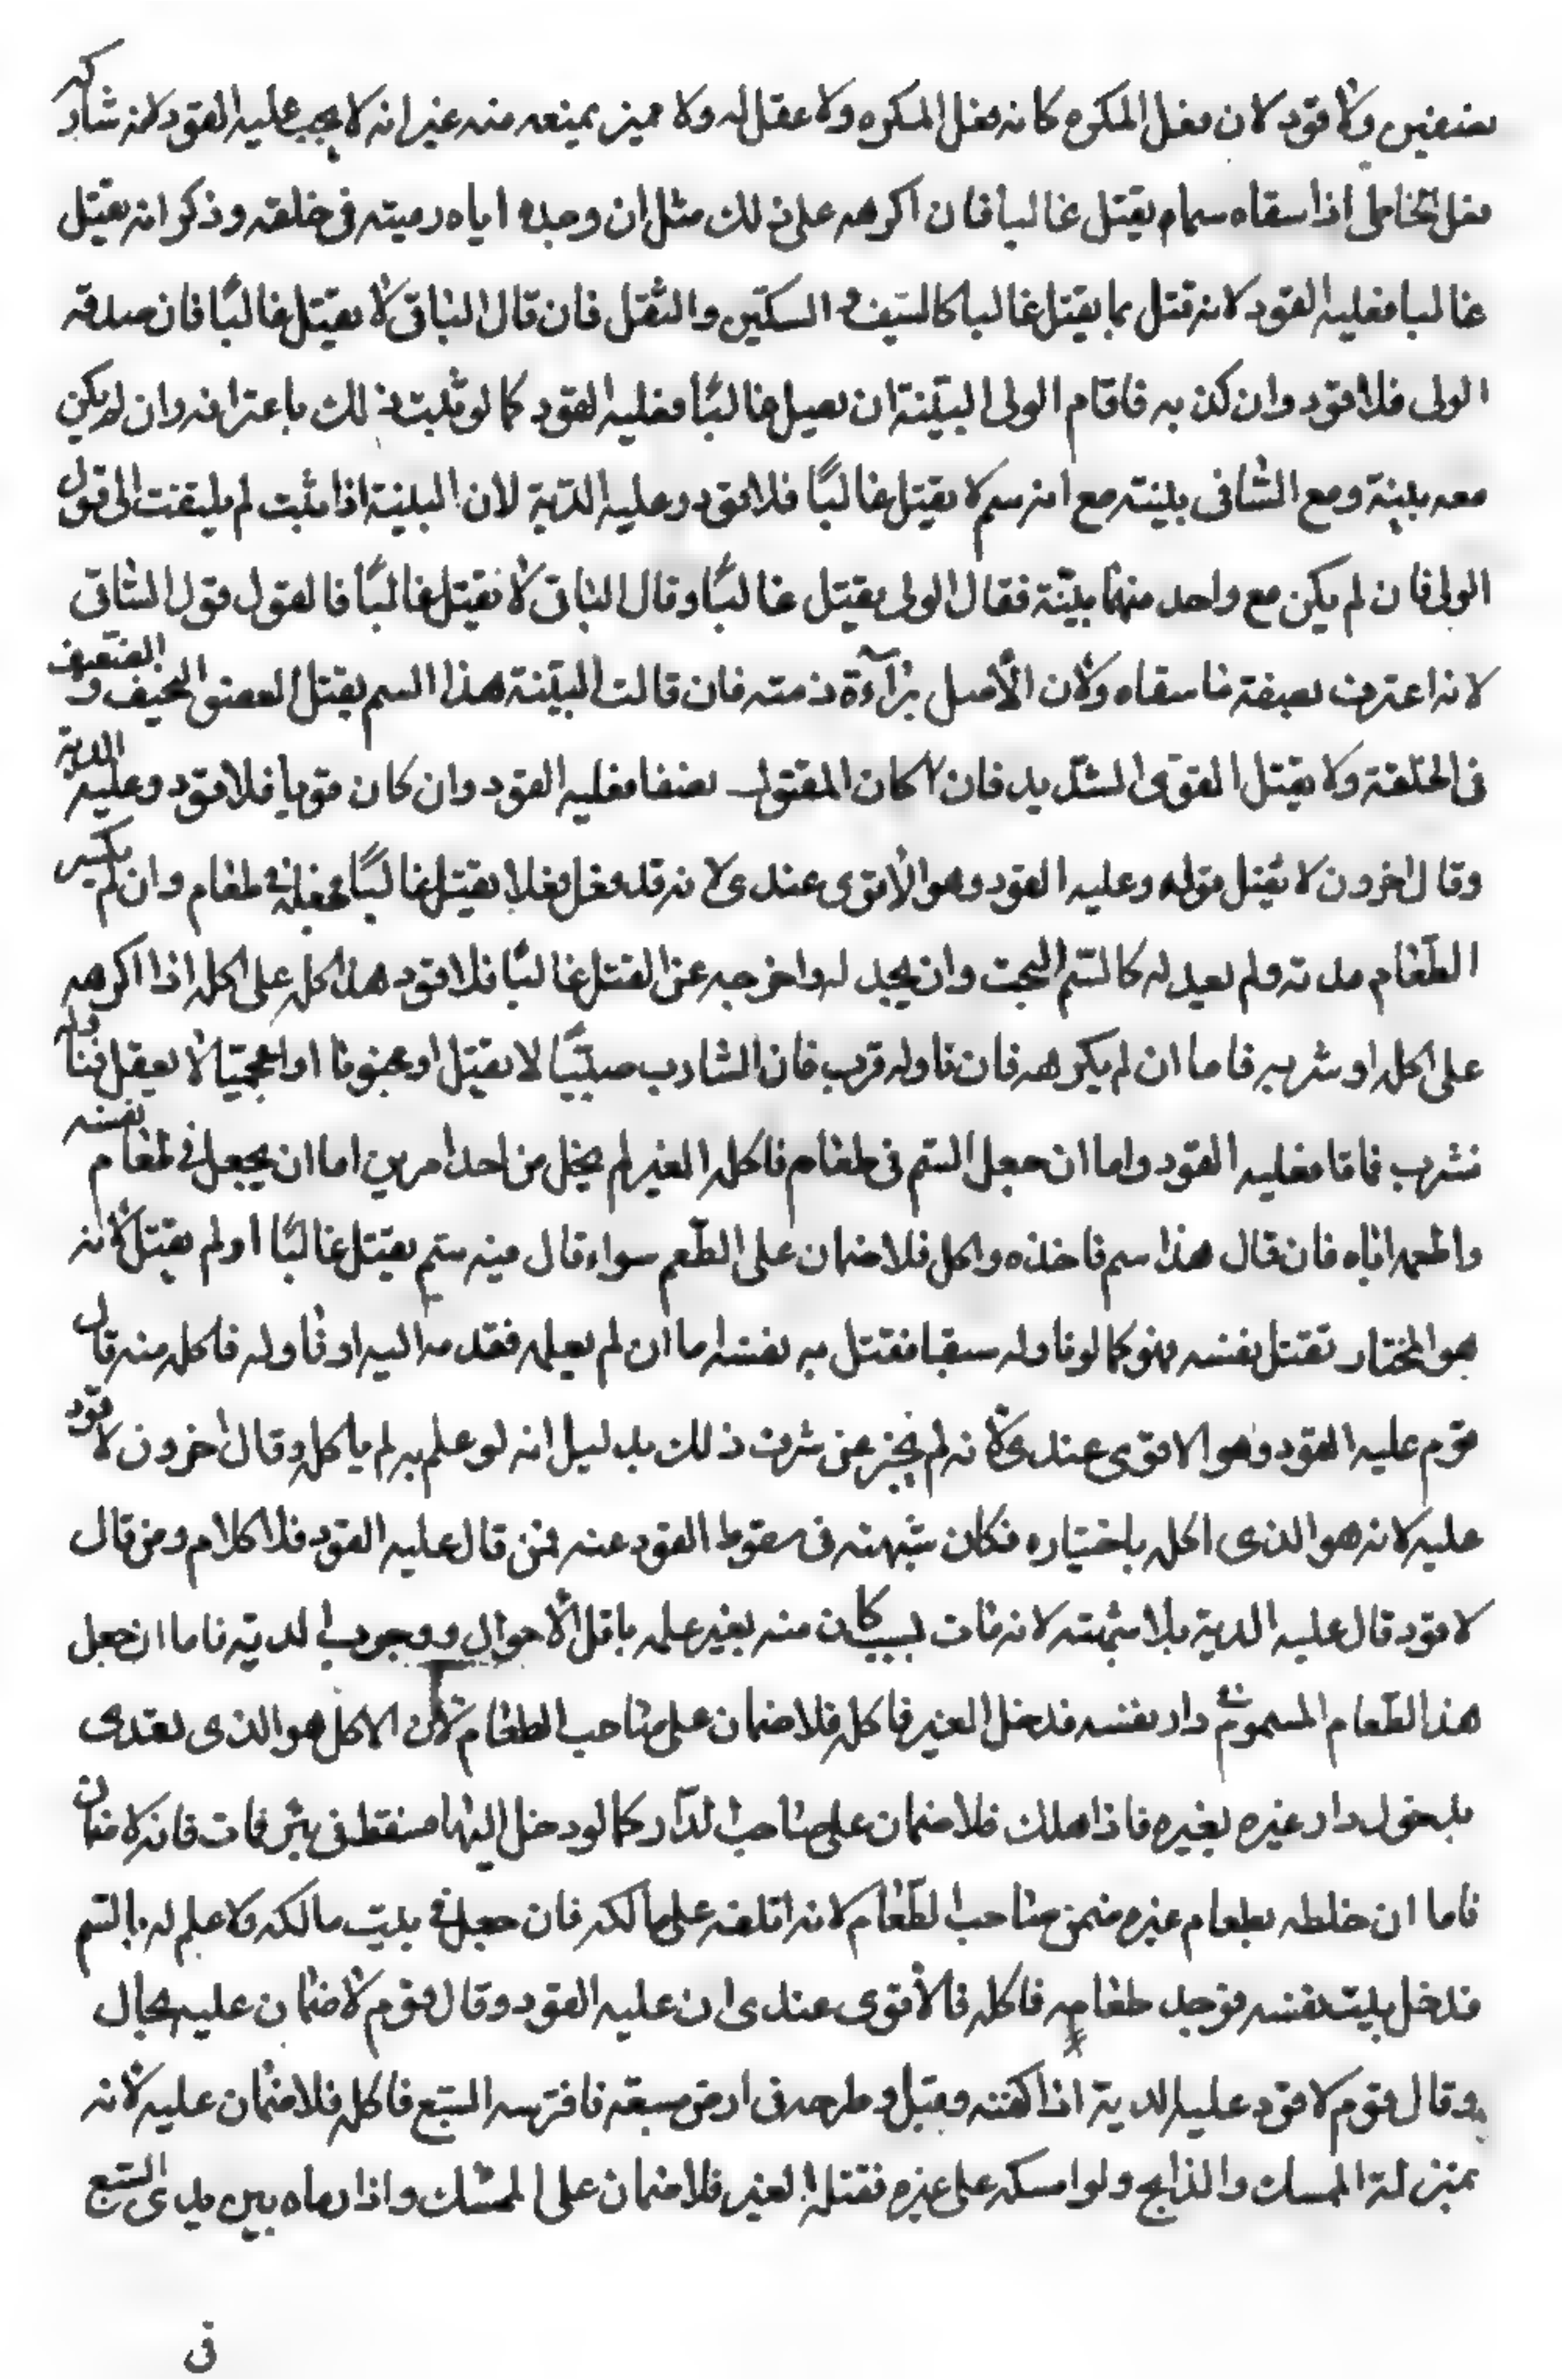 نصفين ولا قود لان فعل المكره كانه فعل المكره ولا عقل له ولا مميز يمنعه منه غير انه لا يجب عليه القود لانه شارك
فعل الخاطى اذا سقاه سما م يقتل غالبا فان اكرهه على ذلك مثل ان وجده اياه رميته فى حلقه وذكر انه يقتل
غالبا فعليه القود لانه قتل بما يقتل غالبا كالسّيف و السكّين والثقل فان قال الساقى لا يقتل غالبًا فان صدقه
الولى فلا قود وان كذبه فاقام الولى البيّنة ان يقتل غالبًا فعليه القود كما لو ثبت ذلك باعترافه وان لم يكن
معه بينة ومع الساقى بينته مع انه سم لا يقتل غالبًا فلا قود وعليه الدّية لان البينة اذا ثبت لم يلتفت الى قول
الولى فان لم يكن مع واحد منهما بيّنة فقال الولى يقتل غالبًا وقال الساقى لا يقتل غالبًا فالقول قول الساقى
لانه اعترف بصفة ما سقاه ولان الأصل برآءة ذمته فان قالت البيّنة هذا السم يقتل النحيف والضّعيف
فى الخلقة ولا يقتل القوى الشّديد فان كان المقتول نضفا فعليه القود وان كان قويا فلا قود وعليه الدية
وقال اخرون لا يقبل قوله وعليه القود وهو الأقوى عندى لانه قد فعل فعلا يقتل غالبًا فجعله فى طعام وان لم يكسر
الطّعام مدته ولم يعدله كالسّم البحت وان يجد له واخرجه عن القتل غالبًا فلا قود هذا كله على اكله اذا اكرهه
على اكله او شربه فاما ان لم يكرهه فان ناوله قرب فان الشارب صبيّا لا يقتل او مجنونا او اعجميّا لا يعقل فناوله
فشرب فاتا فعليه القود واما ان جعل السّم فى طعام فاكله الغير لم يخل من احد امرين اما ان يجعل فى طعام نفسه
واطعمه اياه فان قال هذا سم فاخذه واكل فلا ضمان على الطّعم سواء قال فيه سّم يقتل غالبًا او لم يقتل لانه
هو المختار تقتل نفسه فهو كما لو ناوله سيفا فقتل به نفسه اما ان لم يعلمه فقدمه اليه او ناوله فاكله منه قال
قوم عليه القود وهو الاقوى عندى لانه لم يخبر عن شرف ذلك بدليل انه لو علم به لم ياكل وقال اخرون لا قود
عليه لانه هو الذى اكله باختياره فكان شبهته فى سقوط القود عنه فمن قال عليه القود فلا كلام ومن قال
لا قود قال عليه الدية بلا شبهته لانه مات بسبب كان منه بغير علمه باقل الأحوال ووجوب الدية فاما ان جعل
هذا الطّعام المسموم فى دار نفسه فدخل الغير فاكله فلا ضمان على صاحب الطعام لان الاكل هو الذى تعدى
بدخول دار غيره بغيره فاذا هلك فلا ضمان على صاحب الدّار كما لو دخل اليها فسقط فى بئر فمات فانه لا ضمان
فاما ان خلطه بطعام غيره ضمن صاحب الطّعام لانه اتلفه على مالكه فان جعل فى بيت مالكه ولا علم له بالسّم
فدخل بيت نفسه فوجد طعامه فاكله فالأقوى عندى ان عليه القود وقال قوم لا ضمان عليه بحال
وقال قوم لا قود عليه الدية اذا كفته وقبل وطرحه فى ارض مسبعة فافترسه السّبع فاكله فلا ضمان عليه لانه
بمنزلة الممسك والذابح ولو امسكه على غيره فقتله الغير فلا ضمان على الممسك واذا رماه بين يدى السّبع
فى